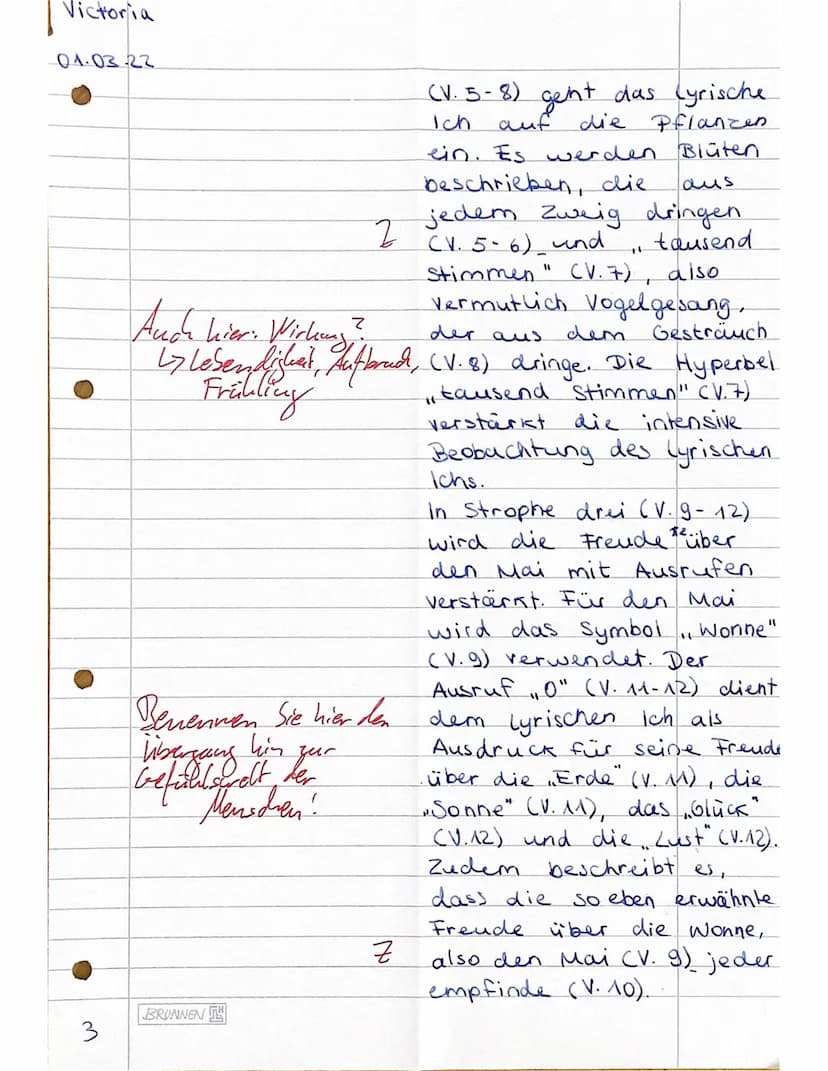 Victoria
01.03.22
(V. 5-8) geht das lyrische
Ich auf die Pflanzen
ein. Es werden Blüten
beschrieben, die aus
jedem Zweig dringen
Z
(V. 5-6) und „tausend
Stimmen" (V.7), also
vermutlich Vogelgesang,
Auch hier: Wirkung?
der aus dem Gesträuch
↳ Lebendigkeit, Aufbruch,
(V.8) dringe. Die Hyperbel
Frühling
„tausend Stimmen" (V.7)
verstärkt die intensive
Beobachtung des lyrischen
Ichs.
In Strophe drei (V. 9-12)
wird die Freude *2 über
den Mai mit Ausrufen
verstärkt. Für den Mai
wird das Symbol „Wonne"
(V.9) verwendet. Der
Ausruf „O" (V. 11-12) dient
Benennen Sie hier den
dem lyrischen Ich als
Übergang hin zur
Ausdruck für seine Freude
Gefühlswelt der
über die „Erde" (V. 11), die
Menschen!
„Sonne" (V.11), das „Glück"
(V.12) und die „Lust" (V.12).
Zudem beschreibt es,
dass die so eben erwähnte
Freude über die Wonne,
Z
also den Mai (V. 9) jeder
empfinde (V. 10).
BRUNNEN
3